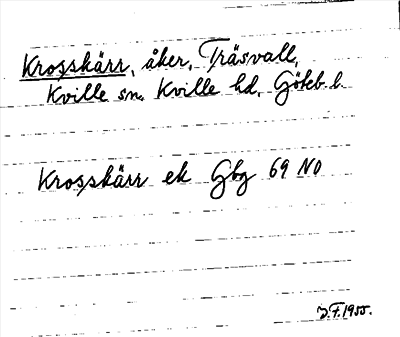 Krosskärr, åker, Träsvall,
Kville sn. Kville hd. Göteb. l.
Krosskärr ek Gbg 69 NO
J.F. 1955.